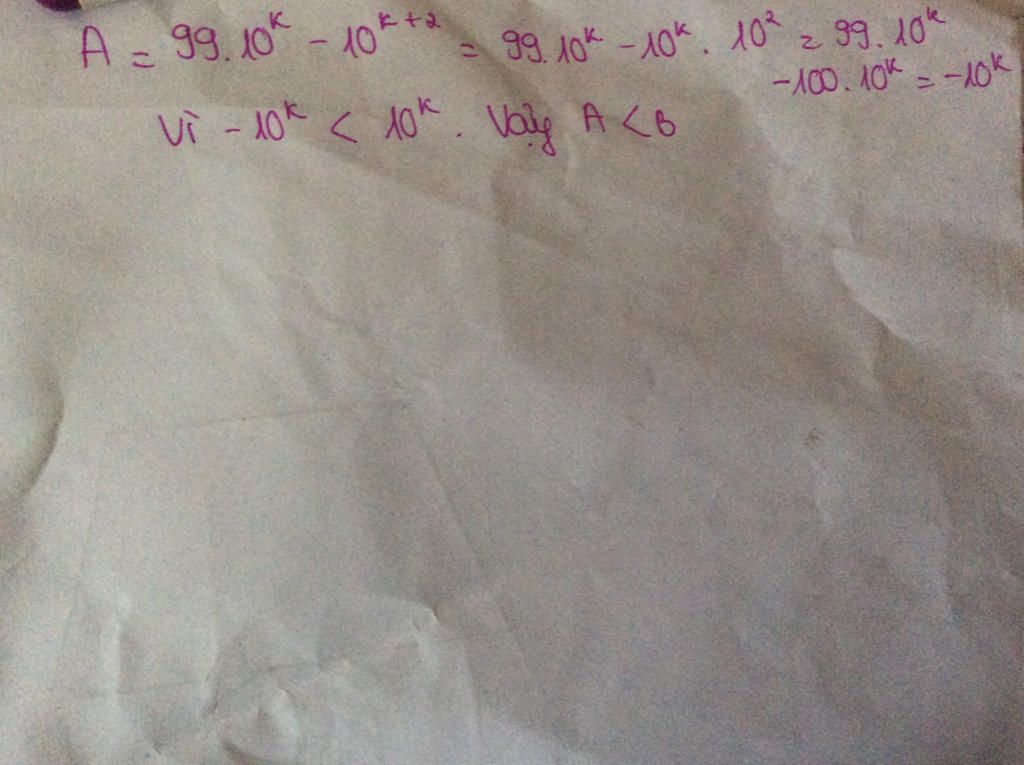 A = 99.10^k - 10^{k+2} = 99.10^k - 10^k . 10^2 = 99.10^k
-100.10^k = -10^k
Vì -10^k < 10^k. Vậy A < B